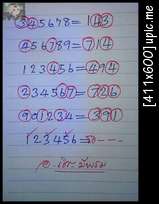 345678= 143
456789= 714
123456= 494
234567= 726
901234= 391
123456=
[411x600] upic.me